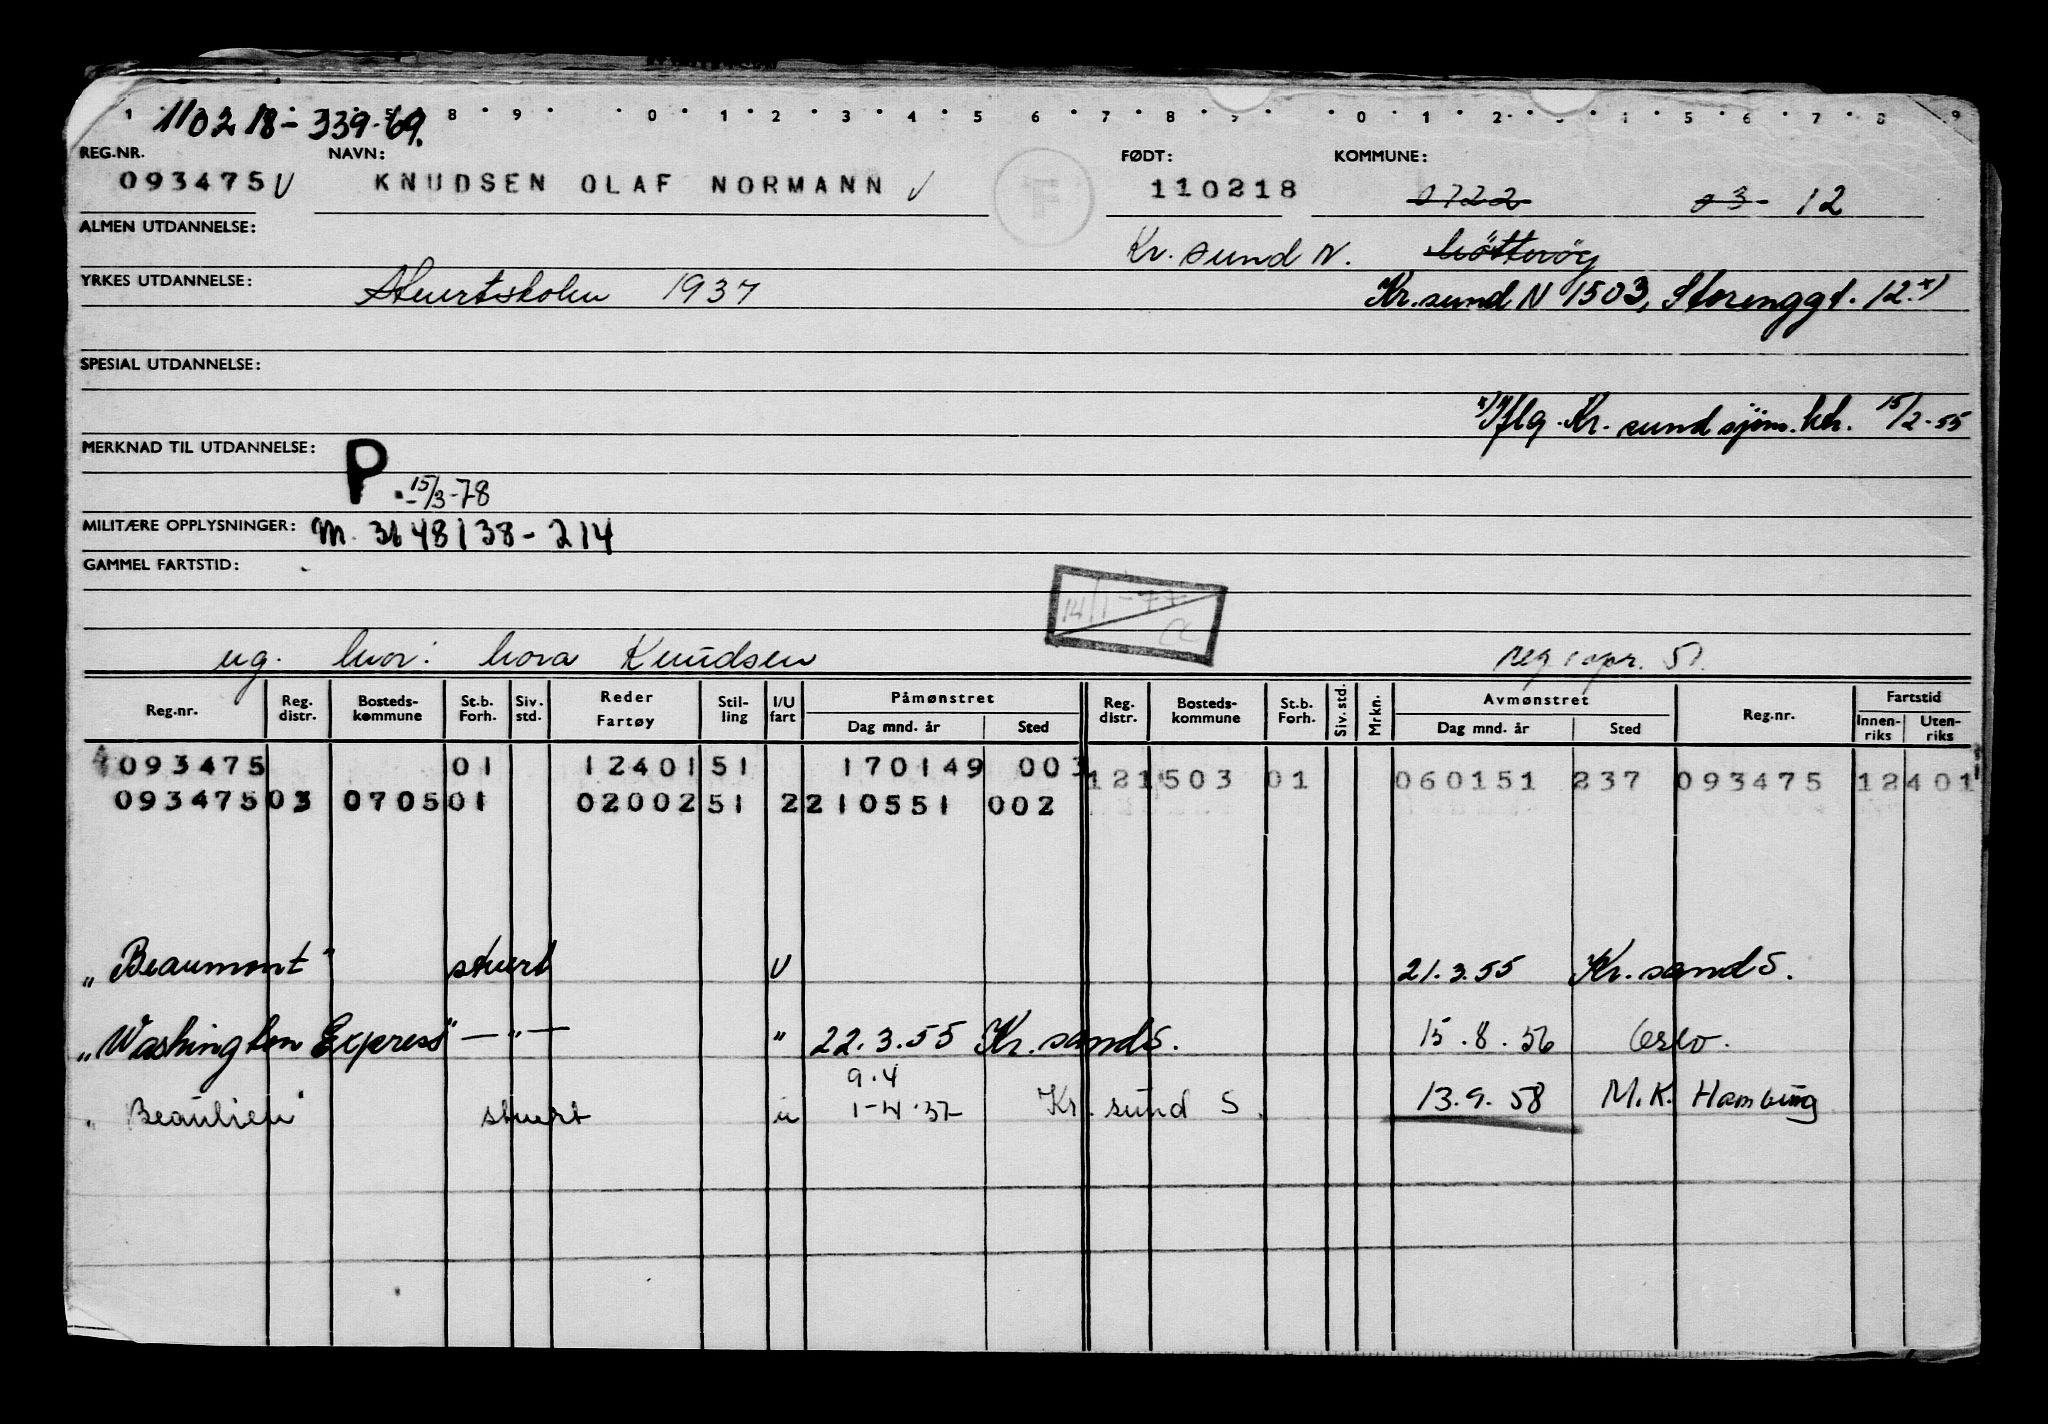 110218-339-69.
REG.NR. NAVN: FØDT: KOMMUNE:
093475 V KNUDSEN OLAF NORMANN F 110218 0722 03 12
ALMEN UTDANNELSE: Kr. sund N.
YRKES UTDANNELSE: Stuertskolen 1937 Kr. sund N 1503, Storenggt. 12.x)
SPESIAL UTDANNELSE:
x) Iflg. Kr. sund sjøm. ktr. 15/2-55
MERKNAD TIL UTDANNELSE: P. 15/3-78
MILITÆRE OPPLYSNINGER: M. 3648138-214
GAMMEL FARTSTID:
14/1-77
ug. mor: Nora Knudsen reg. apr. 51.
Reg.-nr. Reg. distr. Bosteds-kommune St.b. Forh. Siv. std. Reder Fartøy Stil-ling I/U fart Påmønstret Dag mnd. år Sted Reg. distr. Bosteds-kommune St.b. Forh. Siv. std. Mrkn. Avmønstret Dag mnd. år Sted Reg.nr. Fartstid Innen-riks Uten-riks
093475 01 12401 51 170149 003 12 1503 01 060151 237 093475 12401
093475 03 0705 01 02002 51 2 210551 002
"Beaumont" stuert U 21.3.55 Kr. sand S.
"Washington Express" —"— " 22.3.55 Kr. sand S. 15.8.56 Oslo.
9.4
"Beaulieu" stuert u 1-4.57 Kr. sund S. 13.9.58 M.K. Hamburg